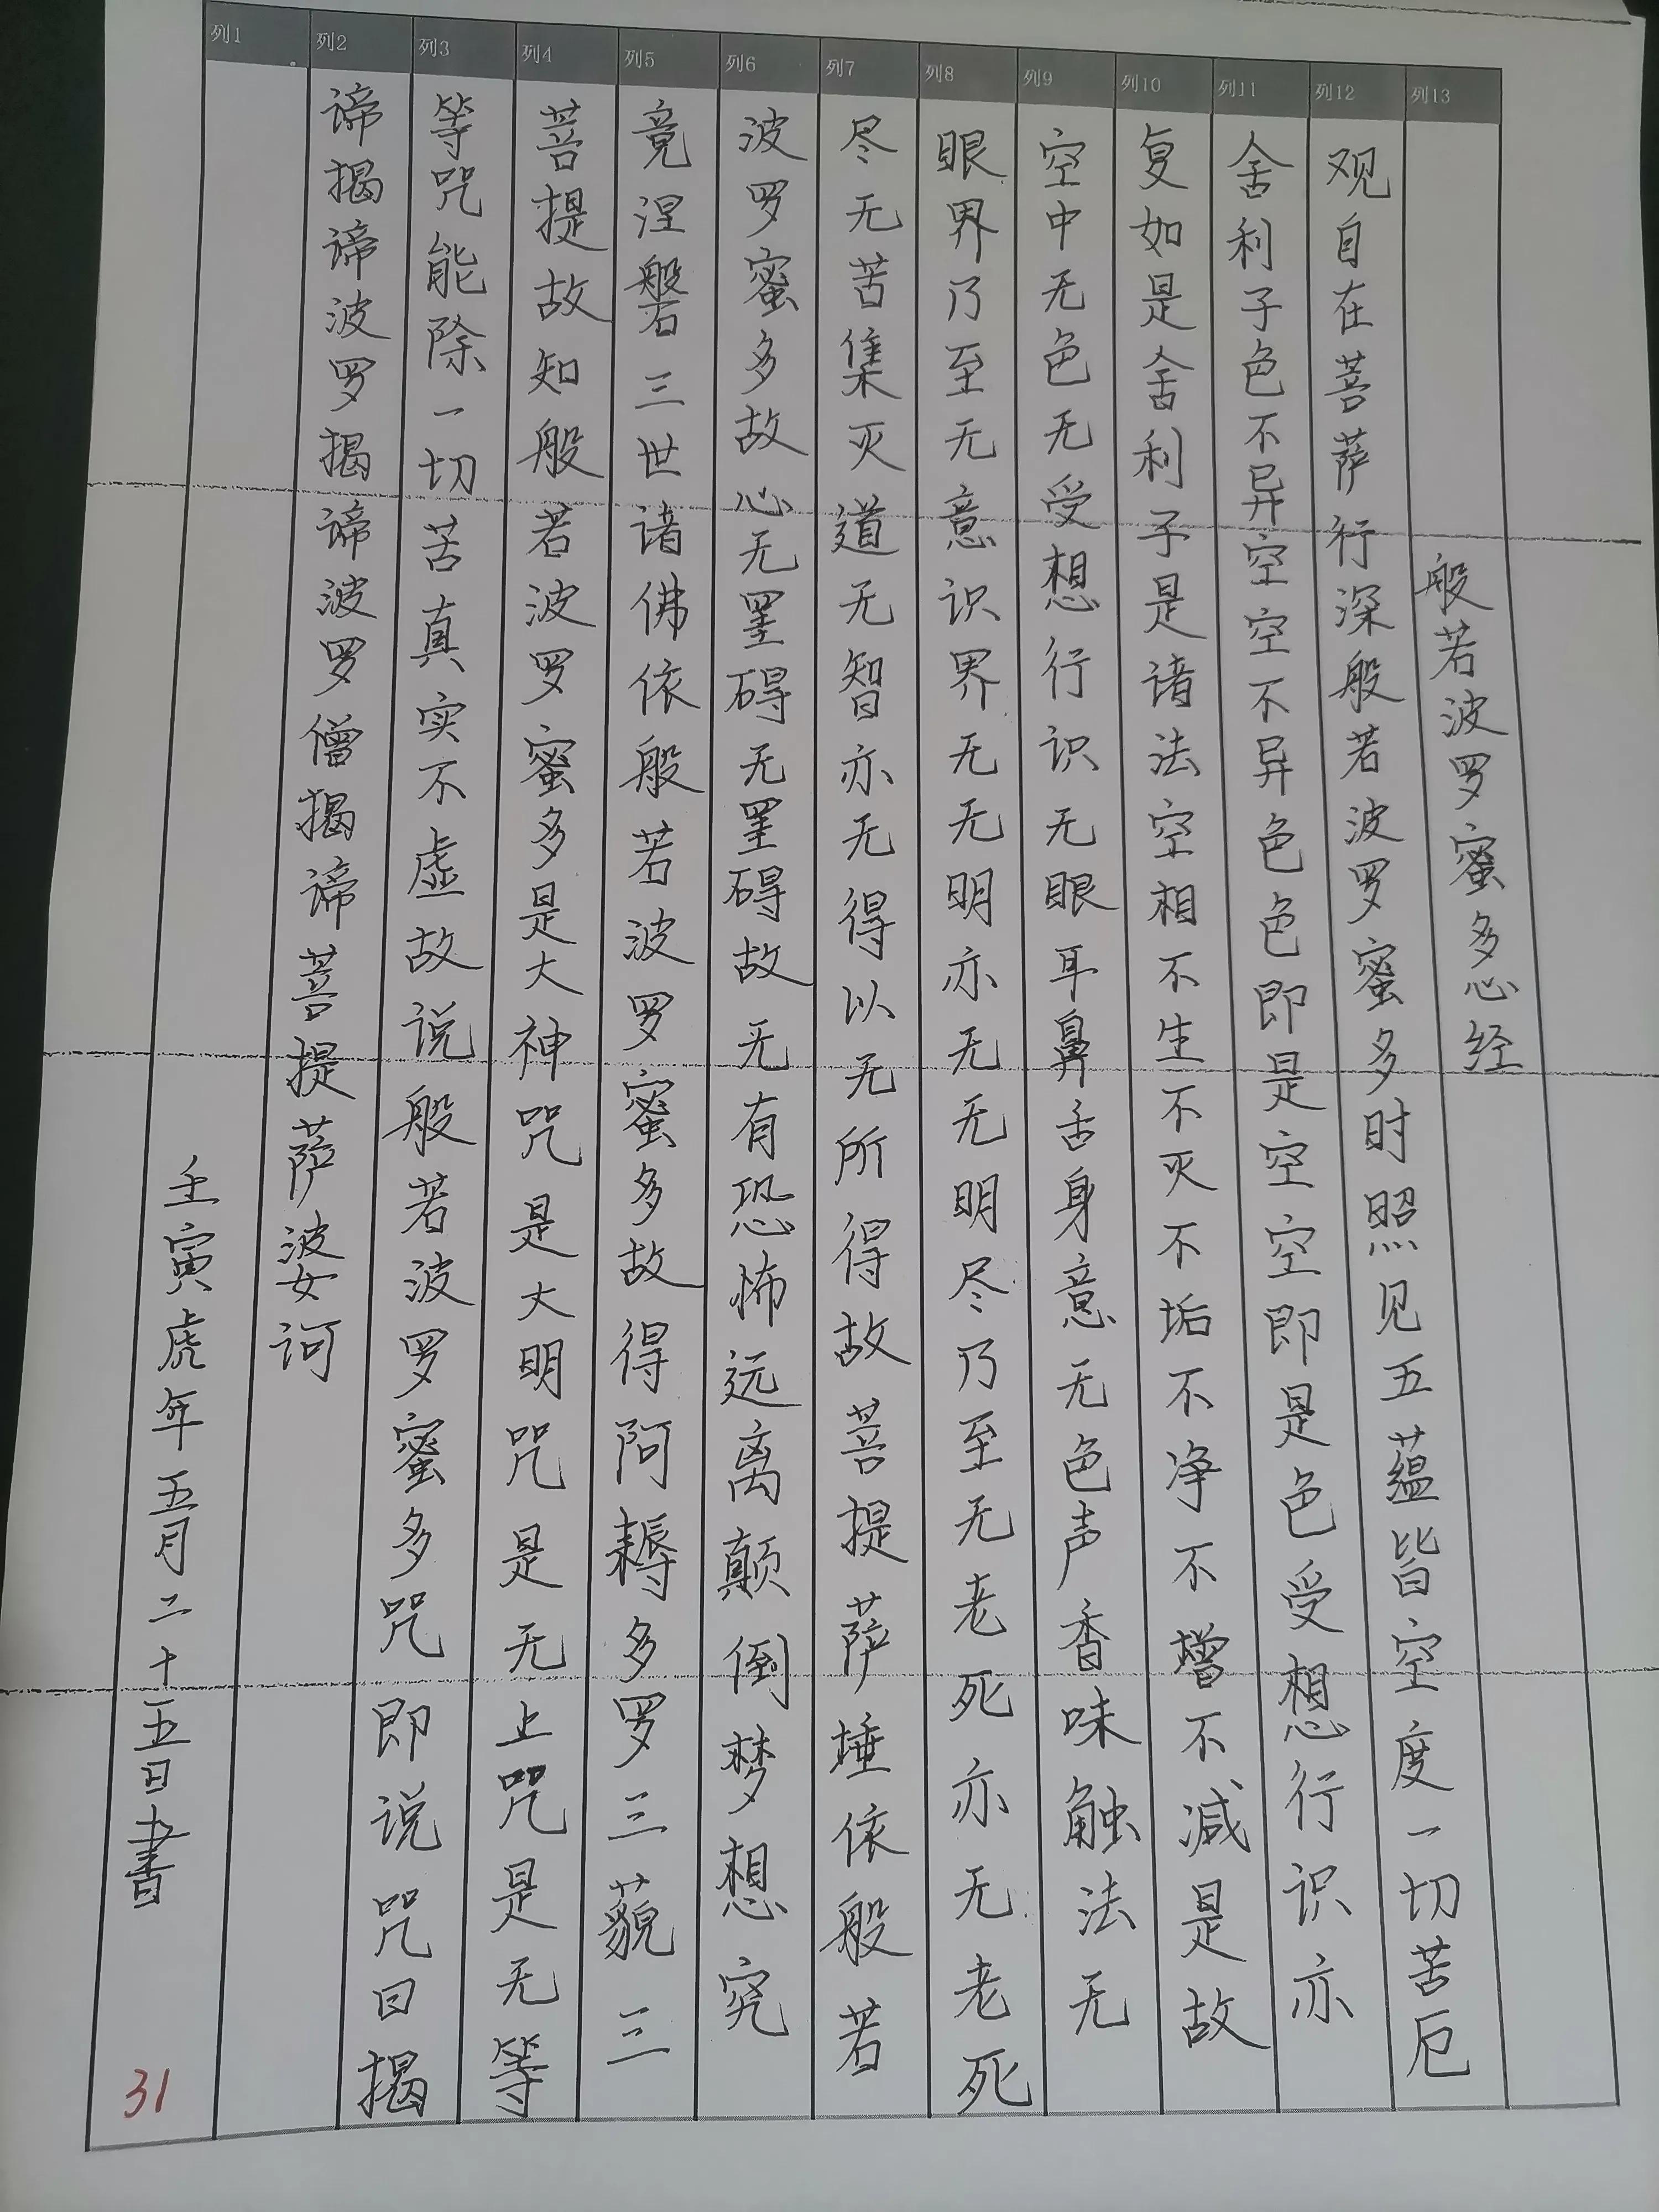 列1 列2 列3 列4 列5 列6 列7 列8 列9 列10 列11 列12 列13
般若波罗蜜多心经
观自在菩萨行深般若波罗蜜多时照见五蕴皆空度一切苦厄
舍利子色不异空空不异色色即是空空即是色受想行识亦
复如是舍利子是诸法空相不生不灭不垢不净不增不减是故
空中无色无受想行识无眼耳鼻舌身意无色声香味触法无
眼界乃至无意识界无无明亦无无明尽乃至无老死亦无老死
尽无苦集灭道无智亦无得以无所得故菩提萨埵依般若
波罗蜜多故心无罣碍无罣碍故无有恐怖远离颠倒梦想究
竟涅磐三世诸佛依般若波罗蜜多故得阿耨多罗三藐三
菩提故知般若波罗蜜多是大神咒是大明咒是无上咒是无等
等咒能除一切苦真实不虚故说般若波罗蜜多咒即说咒曰揭
谛揭谛波罗揭谛波罗僧揭谛菩提萨婆诃
壬寅虎年五月二十五日書
31